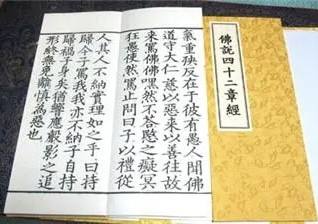 佛說四十二章經
氣重殃反在於彼有愚人聞佛
道守大仁慈以惡來以善往故
來罵佛佛嘿然不答愍之癡冥
狂愚使然罵止問曰子以禮從
人其人不納實理如之乎曰持
歸今子罵我我亦不納子自持
歸禍子身矣猶響應聲影之追
形終無免離慎為惡也